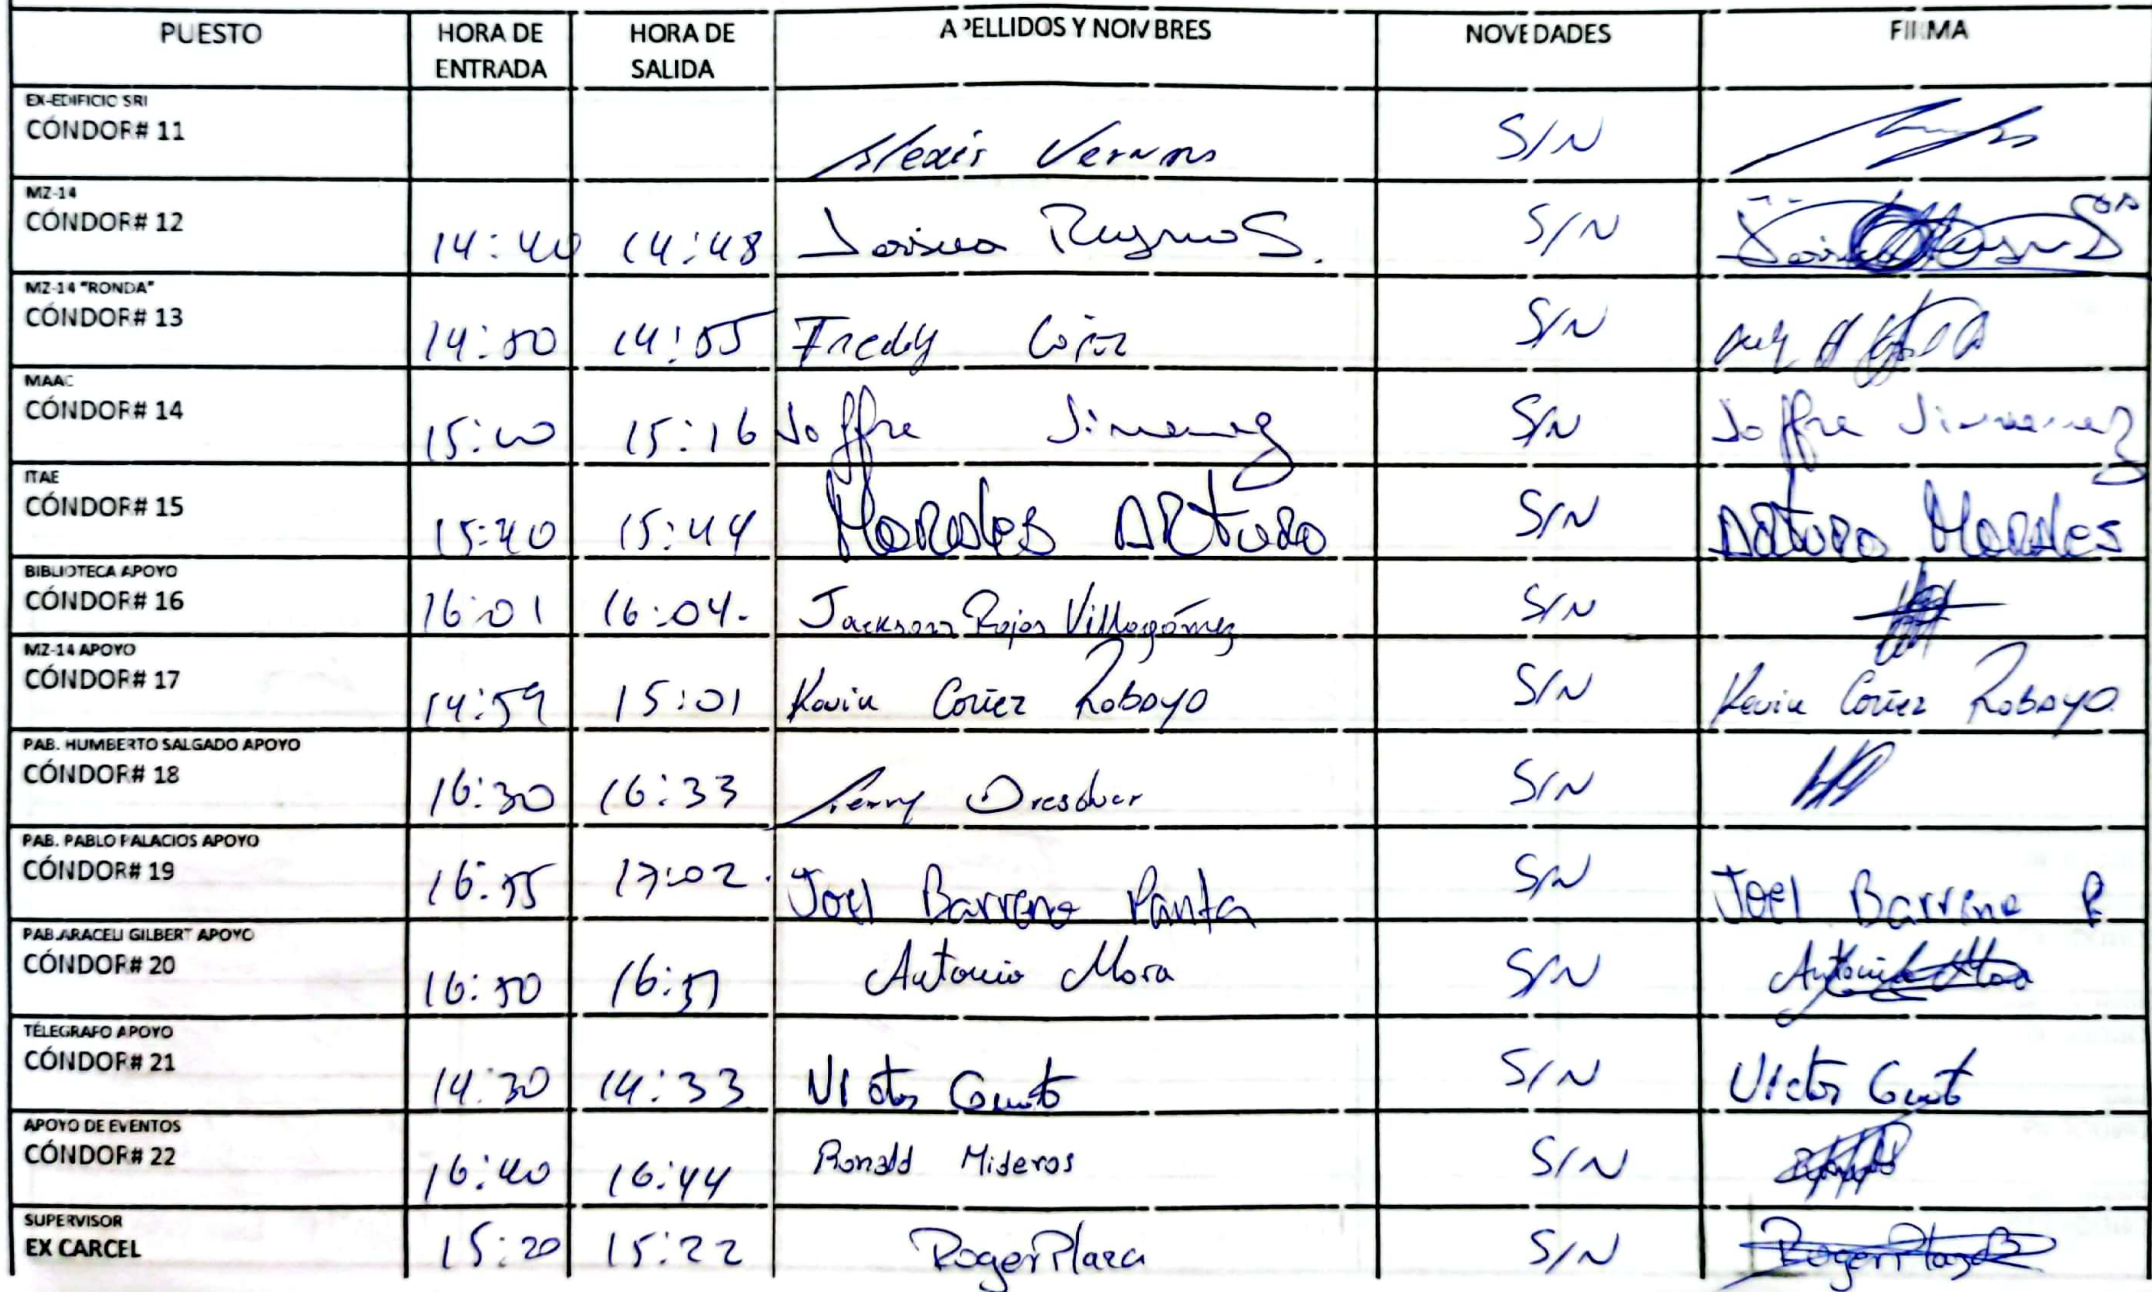 PUESTO HORA DE ENTRADA HORA DE SALIDA APELLIDOS Y NOMBRES NOVEDADES FIRMA
EX-EDIFICIO SRI
CÓNDOR# 11 Alexis S/N
MZ-14
CÓNDOR# 12 14:40 14:48 S. S/N
MZ-14 "RONDA"
CÓNDOR# 13 14:50 14:55 Freddy S/N
MAAC
CÓNDOR# 14 15:16 Joffre Jimenez S/N Joffre Jimenez
ITAE
CÓNDOR# 15 15:40 15:44 Morales Arturo S/N Arturo Morales
BIBLIOTECA APOYO
CÓNDOR# 16 16:01 16:04. Jackson Rojas Villagómez S/N
MZ-14 APOYO
CÓNDOR# 17 14:59 15:01 Kevin Roboyo S/N Kevin Roboyo
PAB. HUMBERTO SALGADO APOYO
CÓNDOR# 18 16:30 16:33 S/N
PAB. PABLO PALACIOS APOYO
CÓNDOR# 19 16:55 17:02. Joel Barreno Panta S/N Joel Barreno P
PAB.ARACELI GILBERT APOYO
CÓNDOR# 20 16:50 16:51 Antonio Mora S/N Antonio Mora
TÉLEGRAFO APOYO
CÓNDOR# 21 14:30 14:33 Victor S/N Victor
APOYO DE EVENTOS
CÓNDOR# 22 16:40 16:44 Ronald Mideros S/N
SUPERVISOR
EX CARCEL 15:20 15:22 Roger Plaza S/N Roger Plaza